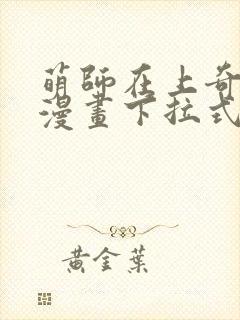 萌師在上奇
漫畫下拉式
黃金葉